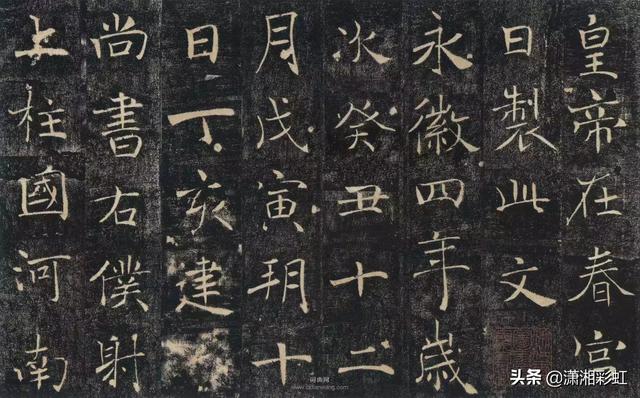 皇帝在春宮
日製此文
永徽四年歲
次癸丑十二
月戊寅朔十
日丁亥建
尚書右僕射
上柱國河南
头条 @潇湘彩虹